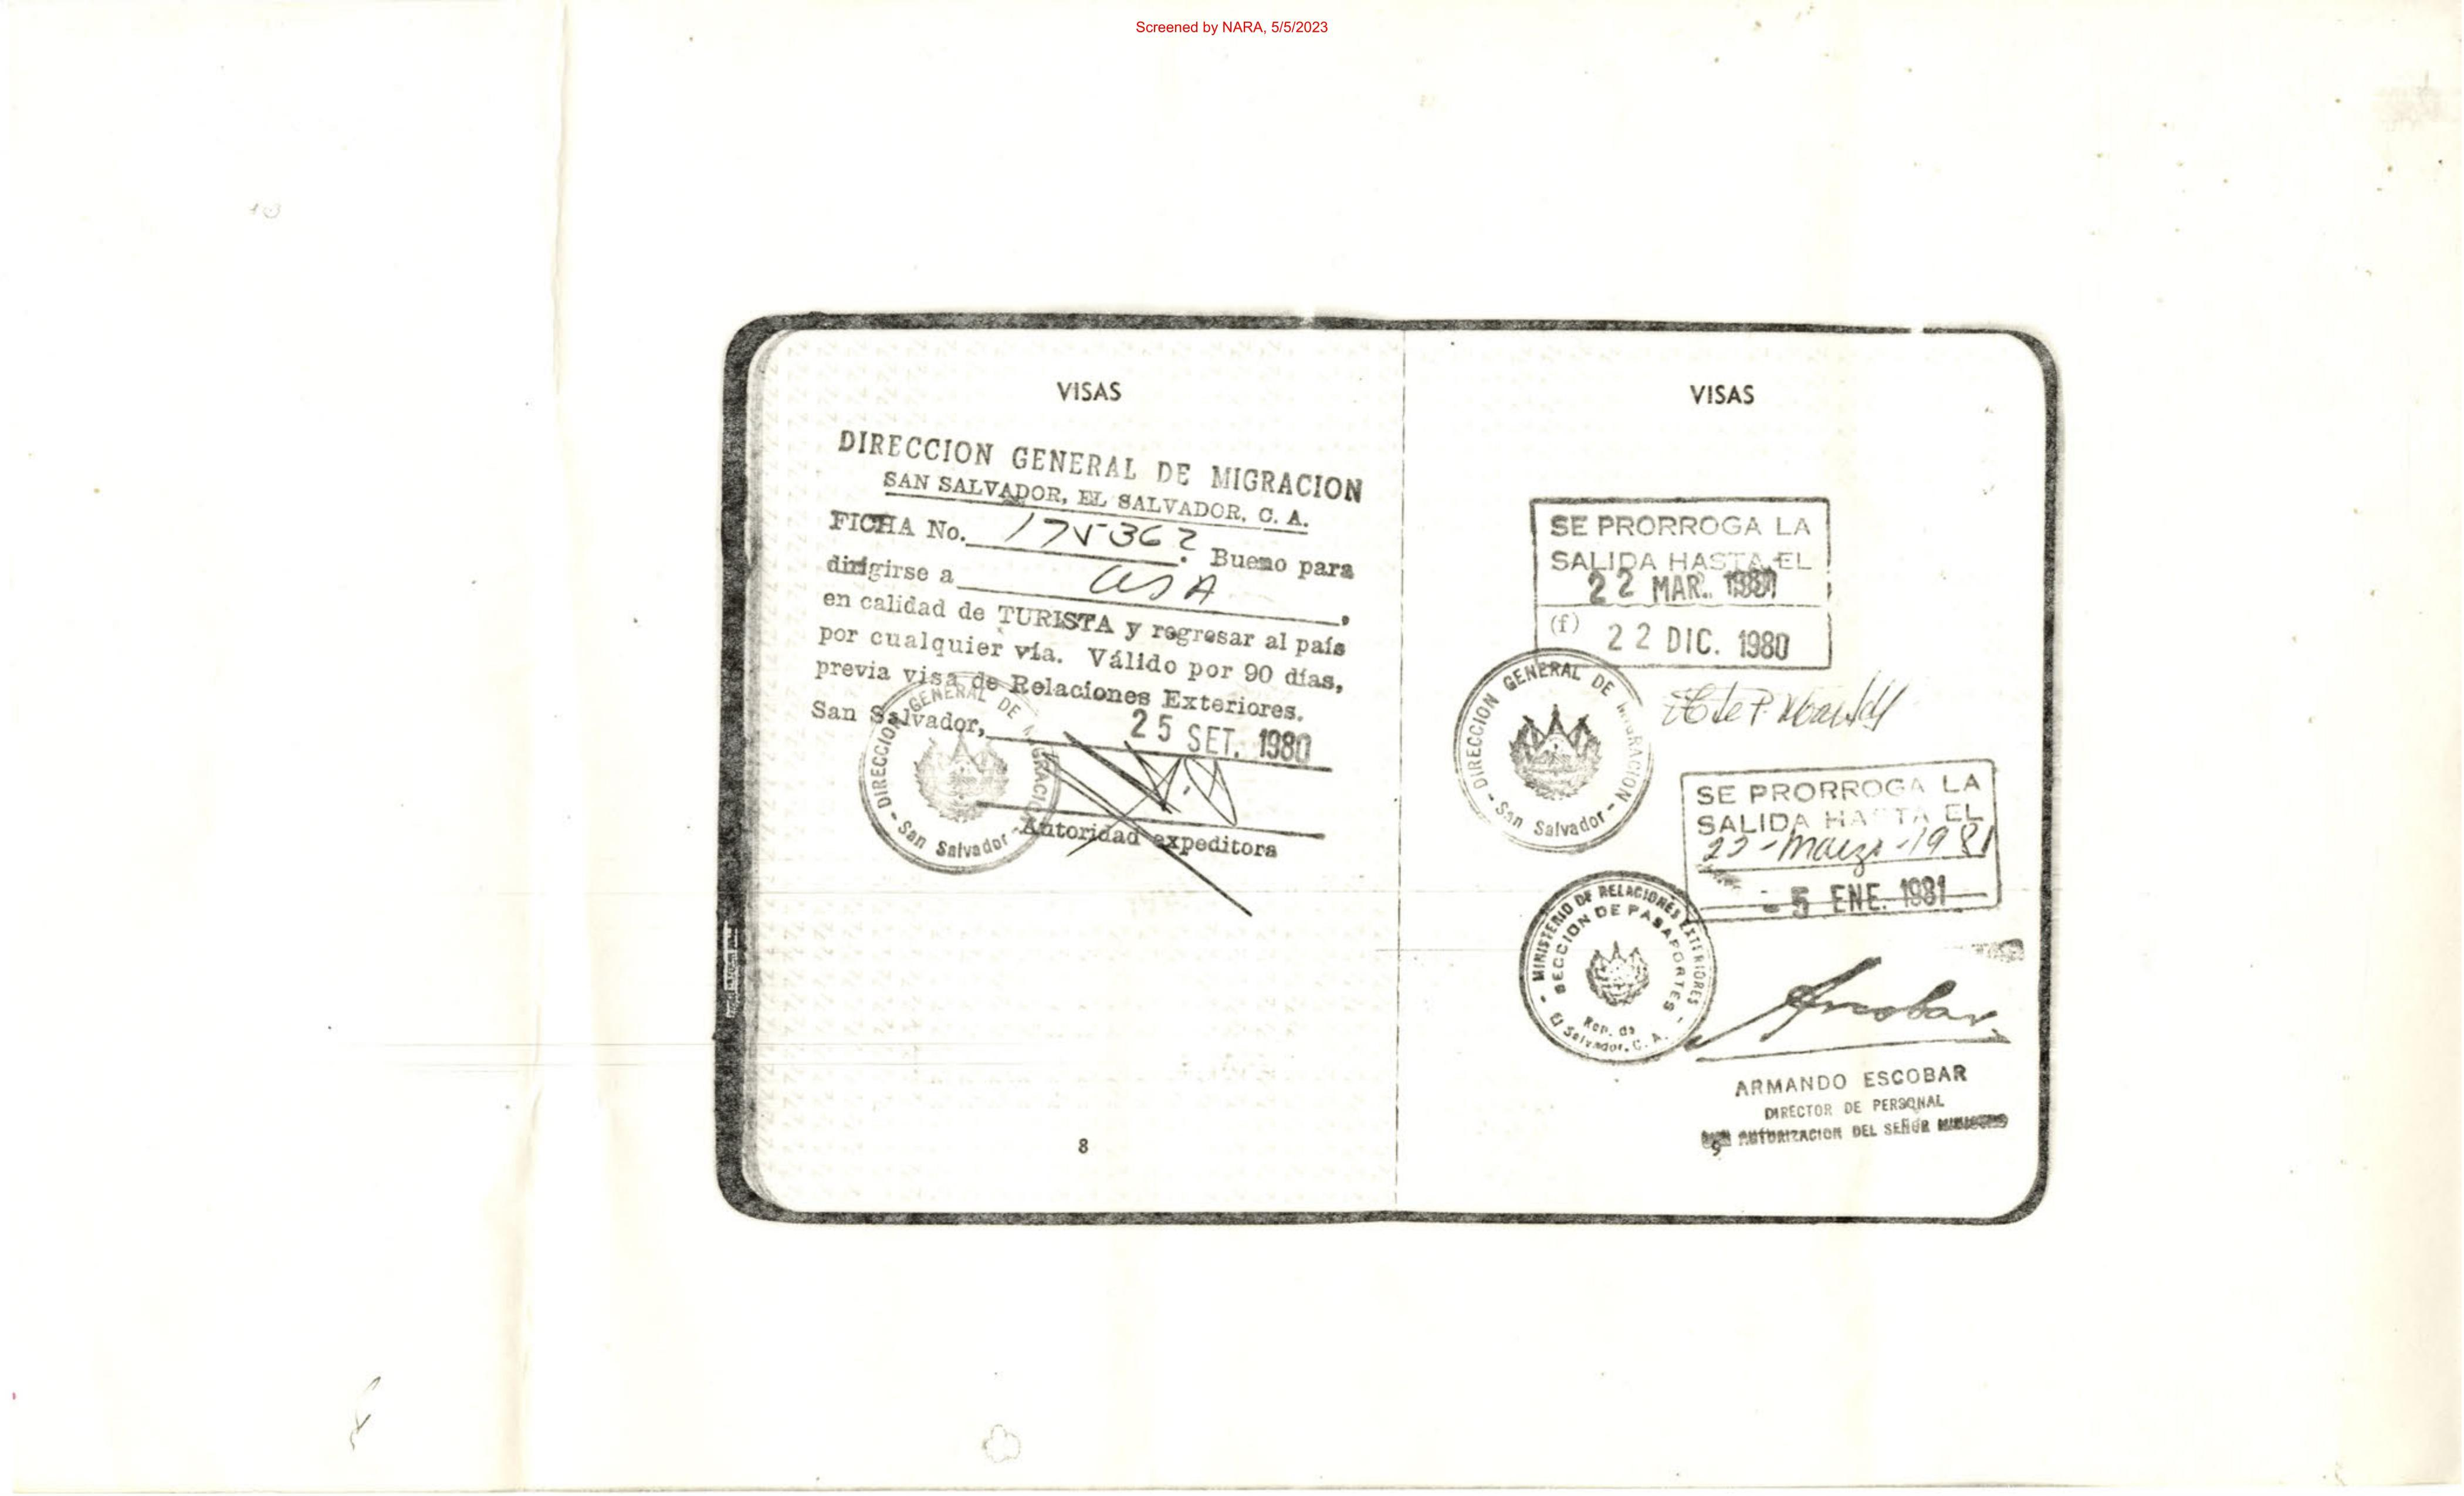 Screened by NARA, 5/5/2023
VISAS
DIRECCION GENERAL DE MIGRACION
SAN SALVADOR, EL SALVADOR, C. A.
FICHA No. 175362. Bueno para
dirigirse a USA,
en calidad de TURISTA y regresar al país
por cualquier vía. Válido por 90 días,
previa visa de Relaciones Exteriores.
San Salvador, 25 SET. 1980
Autoridad expeditora
DIRECCION GENERAL DE MIGRACION
- San Salvador -
8
VISAS
SE PRORROGA LA
SALIDA HASTA EL
22 MAR. 1981
(f) 22 DIC. 1980
DIRECCION GENERAL DE MIGRACION
- San Salvador -
SE PRORROGA LA
SALIDA HASTA EL
22-Marzo-1981
- 5 ENE. 1981
MINISTERIO DE RELACIONES EXTERIORES
SECCION DE PASAPORTES
Rep. de
El Salvador, C. A.
Escobar
ARMANDO ESCOBAR
DIRECTOR DE PERSONAL
AUTORIZACION DEL SEÑOR MINISTRO
9